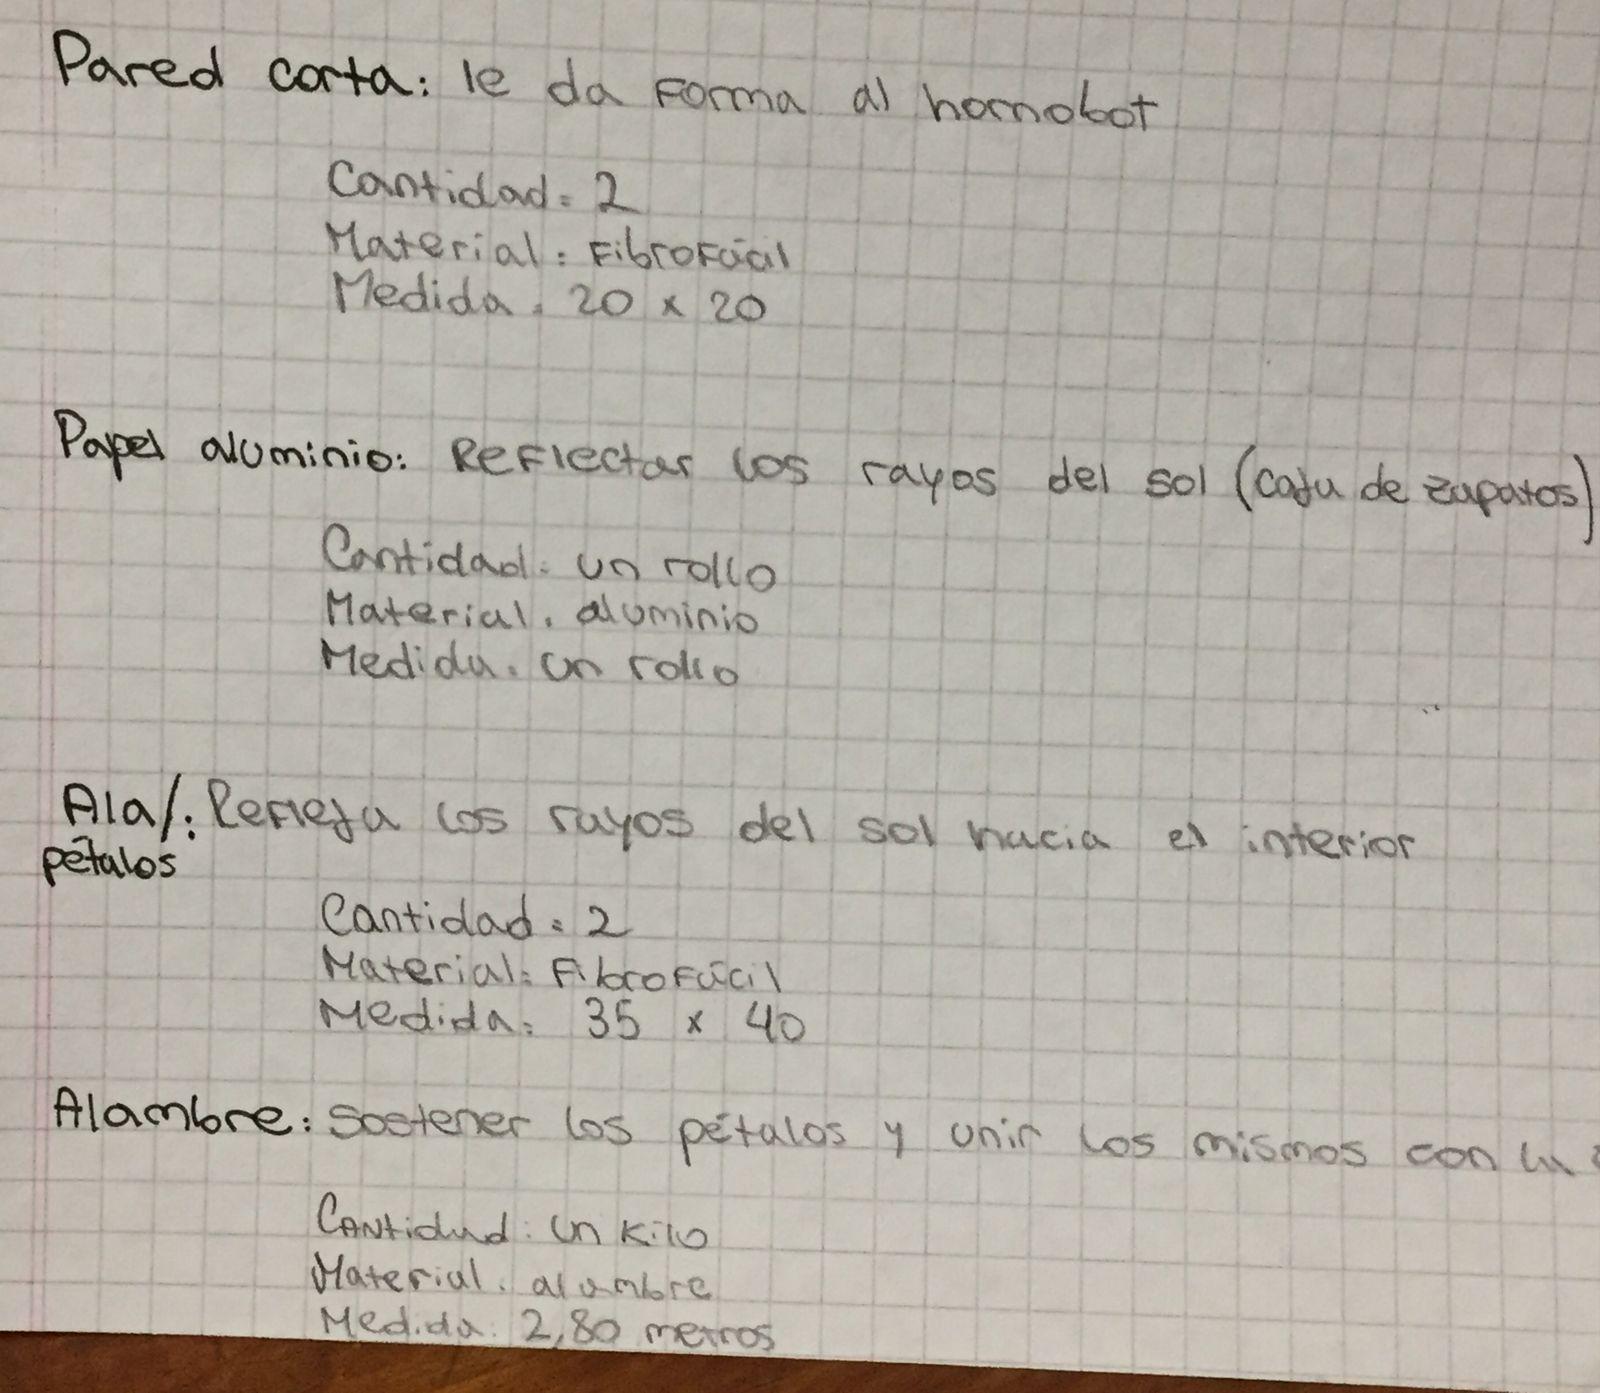 Pared corta: le da Forma al hornobot
Cantidad: 2
Material: Fibrofácil
Medida: 20 x 20
Papel aluminio: Reflectar los rayos del sol (caja de zapatos)
Cantidad: un rollo
Material: aluminio
Medida: un rollo
Ala/: Refleja los rayos del sol hacia el interior
pétalos
Cantidad: 2
Material: Fibrofácil
Medida: 35 x 40
Alambre: Sostener los pétalos y unir los mismos con la
Cantidad: un kilo
Material: alambre
Medida: 2,80 metros